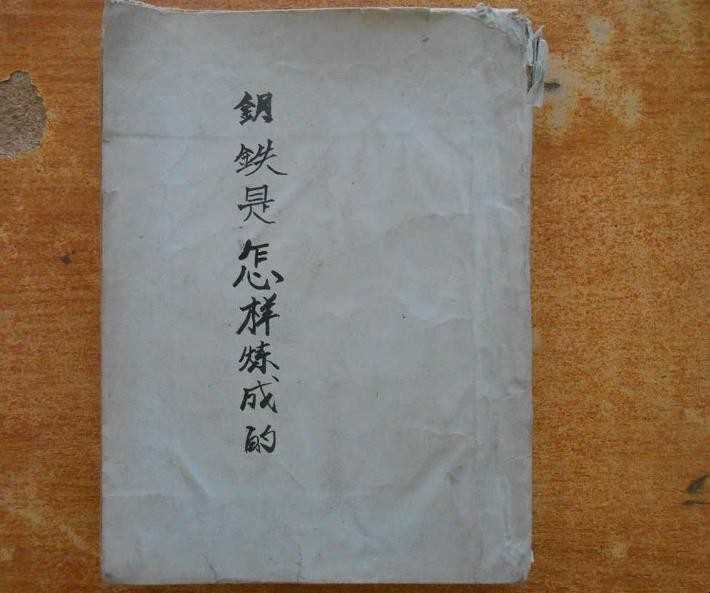 钢鉄是怎样炼成的